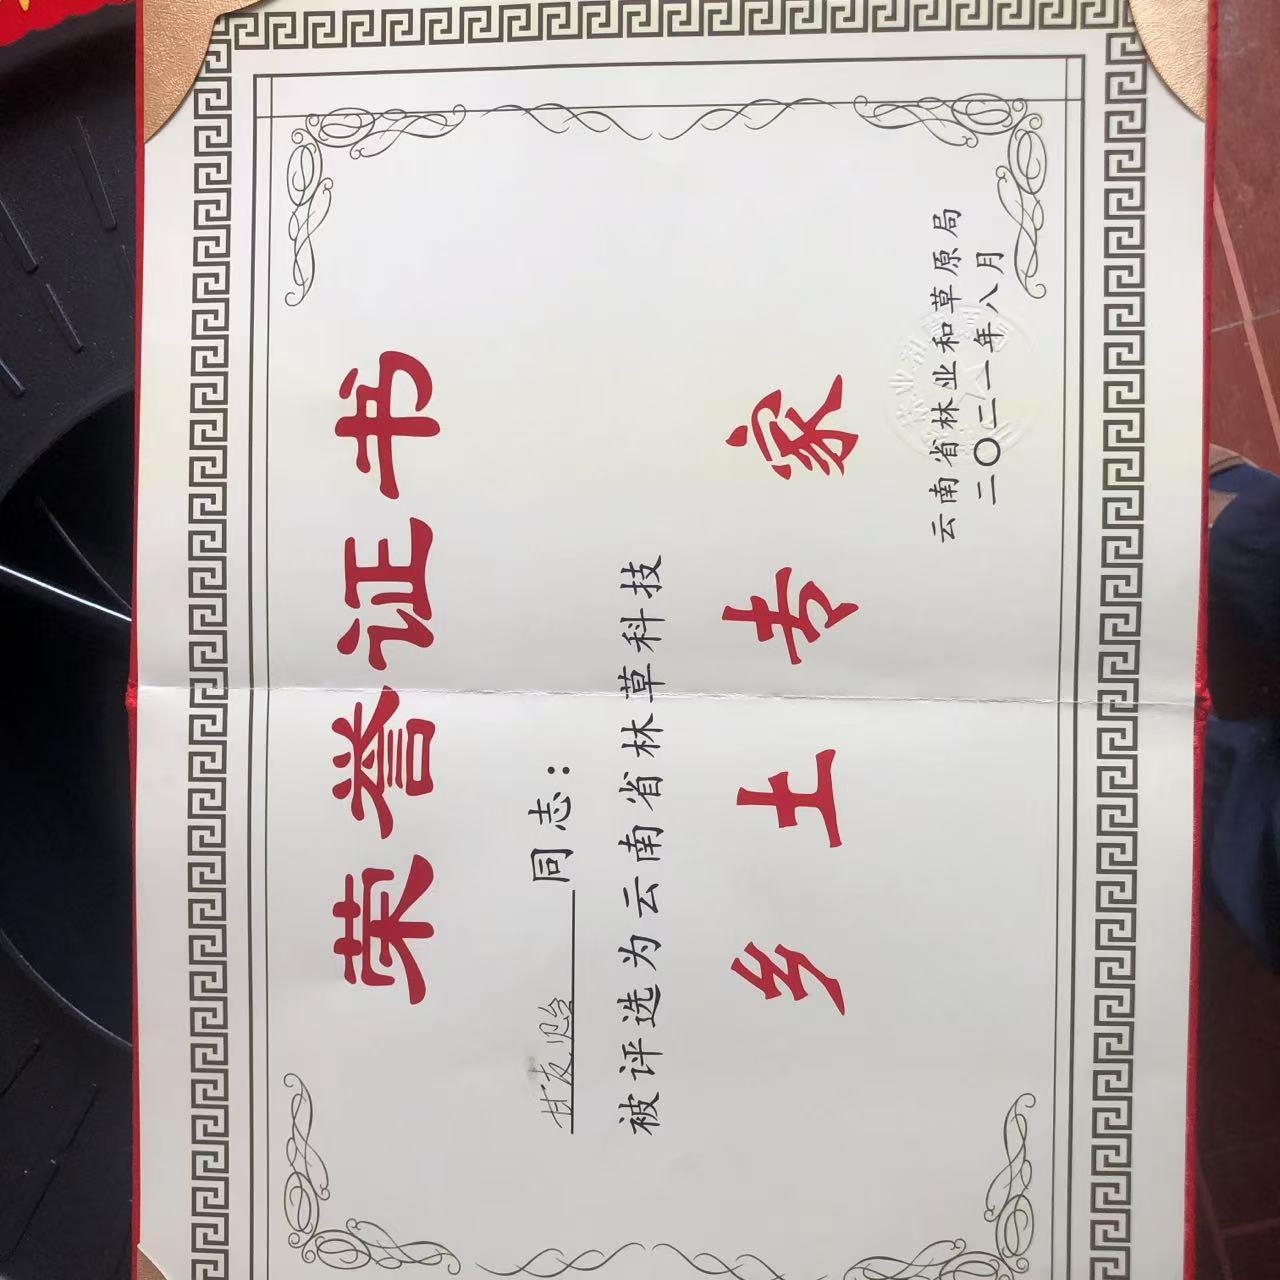 荣誉证书
同志：
被评选为云南省林草科技
乡土专家
云南省林业和草原局
二〇二一年八月